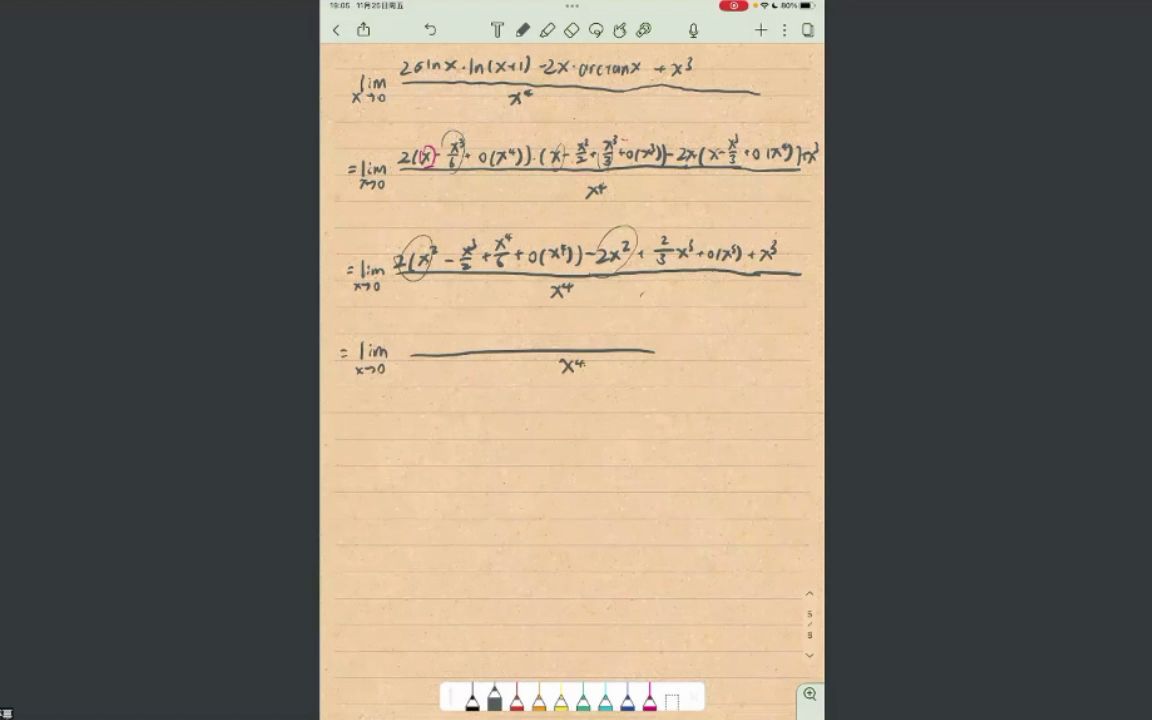 19:05 11月25日周五
80%
lim x→0 (2sinx·ln(x+1) -2x·arctanx + x³) / x⁴
= lim x→0 (2(x - x³/6 + o(x⁴))·(x - x²/2 + x³/3 + o(x³)) - 2x(x - x³/3 + o(x⁴)) + x³) / x⁴
= lim x→0 (2(x² - x³/2 + x⁴/6 + o(x⁴)) - 2x² + 2/3 x³ + o(x⁵) + x³) / x⁴
= lim x→0 ____ / x⁴
5
/